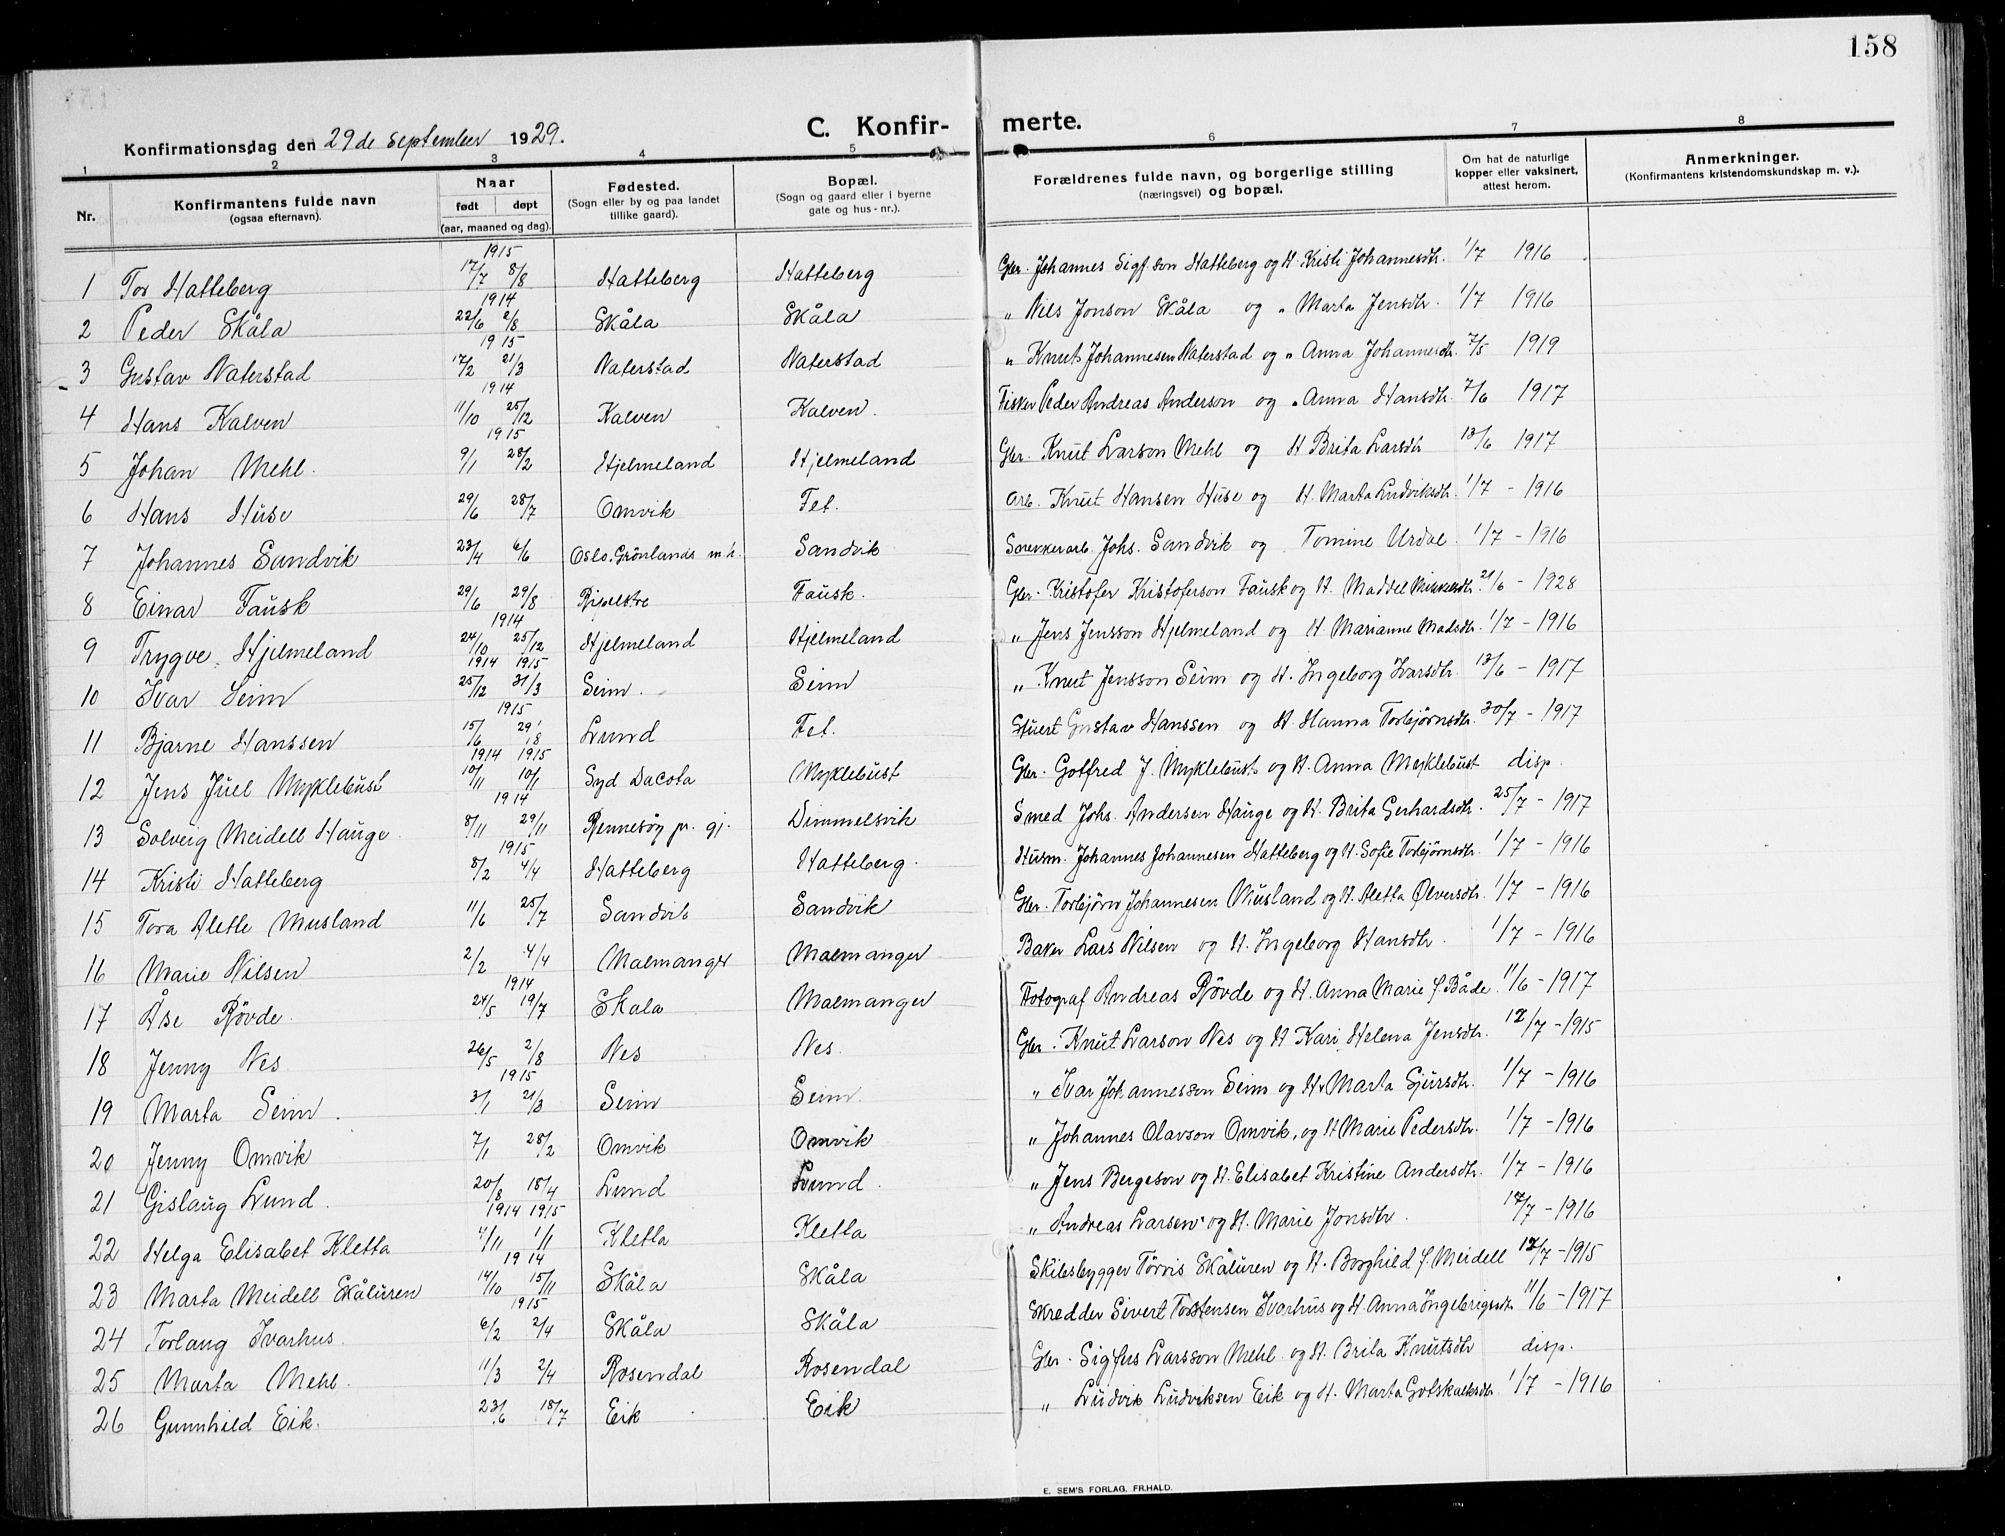 158
Konfirmationsdag den 29de September 1929.
C. Konfir-
merte.
1 2 3 4 5 6 7 8
Nr. Konfirmantens fulde navn (ogsaa efternavn). Naar født døpt (aar, maaned og dag). Fødested. (Sogn eller by og paa landet tillike gaard). Bopæl. (Sogn og gaard eller i byerne gate og hus-nr.). Forældrenes fulde navn, og borgerlige stilling (næringsvei) og bopæl. Om hat de naturlige kopper eller vaksinert, attest herom. Anmerkninger. (Konfirmantens kristendomskundskap m. v.).
1915
1 Tor Hatteberg 17/7 8/8 Hatteberg Hatteberg Gbr. Johannes Sigf.son Hatteberg og H. Kristi Johannesdtr. 1/7 1916
1914
2 Peder Skåla 22/6 2/8 Skåla Skåla " Nils Jonson Skåla og " Marta Jensdtr. 1/7 1916
1915
3 Gustav Naterstad 17/2 21/3 Naterstad Naterstad " Knut Johannesen Naterstad og " Anna Johannesdtr. 7/5 1919
1914
4 Hans Kalven 11/10 25/12 Kalven Kalven. Fisker Peder Andreas Anderson og " Anna Hansdtr. 7/6 1917
1915
5 Johan Mehl. 9/1 28/2 Hjelmeland Hjelmeland Gbr. Knut Larson Mehl og H Brita Larsdtr 13/6 1917
6 Hans Huse 29/6 28/7 Omvik Fet. Arb. Knut Hansen Huse og H. Marta Ludviksdtr. 1/7 - 1916
7 Johannes Sandvik 23/4 6/6 Oslo. Grönlands m.h. Sandvik Johs. Sandvik og Tomine Urdal 1/7 - 1916
8 Einar Fausk 29/6 29/8 Fausk. Gbr. Kristofer Kristoferson Fausk og H. 21/6 - 1928
1914
9 Trygve Hjelmeland 24/10 25/12 Hjelmeland Hjelmeland " Jens Jensson Hjelmeland og H Marianne Madsdtr. 1/7 - 1916
1914 1915
10 Ivar Seim 25/12 31/3 Seim. Seim " Knut Jensson Seim og H. Ingeborg Ivarsdtr. 13/6 - 1917
1915
11 Bjarne Hanssen 15/6 29/8 Lund Fet. Stuert Gustav Hanssen og H. Hanna Torbjörnsdtr. 30/7 - 1917
1914 1915
12 Jens Juel Myklebust 10/11 10/1 Syd Dacota Myklebust Gbr. Gotfred J. Myklebust og H. Anna Myklebust disp.
1914
13 Solveig Meidell Hauge 8/11 29/11 Rennesöy pr. gj. Dimmelsvik Smed Johs. Andersen Hauge og H. Brita Gerhardsdtr. 25/7 - 1917
1915
14 Kristi Hatteberg 8/2 4/4 Hatteberg Hatteberg. Husm. Johannes Johannesen Hatteberg og H. Sofie Torbjörnsdtr. 1/7 - 1916
15 Tora Alette Musland 11/6 25/7 Sandvik Sandvik Gbr. Torbjörn Johannesen Musland og H. Aletta Ølversdtr. 1/7 - 1916
16 Marie Nilsen 2/2 4/4 Malmanger Malmanger Baker Lars Nilsen og H. Ingeborg Hansdtr. 1/7 - 1916
1914
17 Åse Rövde. 24/5 19/7 Skala Malmanger Fotograf Andreas Rövde og H. Anna Marie f. Både 11/6 - 1917
18 Jenny Nes 26/5 2/8 Nes Nes. Gbr. Knut Larson Nes og H Kari Helena Jensdtr. 12/7 - 1915
1915
19 Marta Seim. 3/1 21/3 Seim Seim. " Ivar Johannesson Seim og H. Marta Sjursdtr. 1/7 - 1916
20 Jenny Omvik 7/1 28/2 Omvik Omvik " Johannes Olavson Omvik, og H Marie Pedersdtr. 1/7 - 1916
21 Gislaug Lund. 20/8 18/4 Lund Lund. " Jens Bergeson og H. Elisabet Kristine Andersdtr. 1/7 - 1916
1914 1915
22 Helga Elisabet Kletta 4/11 1/1 Kletta Kletta " Andreas Larsen og H. Marie Jonsdtr. 12/7 - 1916
1914
23 Marta Meidell Skåluren 14/10 15/11 Skåla Skåla Skibsbygger Törris Skåluren og H. Borghild f. Meidell 12/7 - 1915
1915
24 Torlaug Ivarhus. 6/2 2/4 Skåla Skåla Skredder Sivert Torstensen Ivarhus og H. Anna Ingebrigtsdtr. 11/6 - 1917
25 Marta Mehl. 11/3 2/4 Rosendal Rosendal Gbr. Sigfus Larsson Mehl og H. Brita Knutsdtr disp.
26 Gunnhild Eik. 23/6 18/7 Eik Eik " Ludvik Ludviksen Eik og H. Marta Gotskalksdtr. 1/7 - 1916
E. SEM'S FORLAG, FR.HALD.